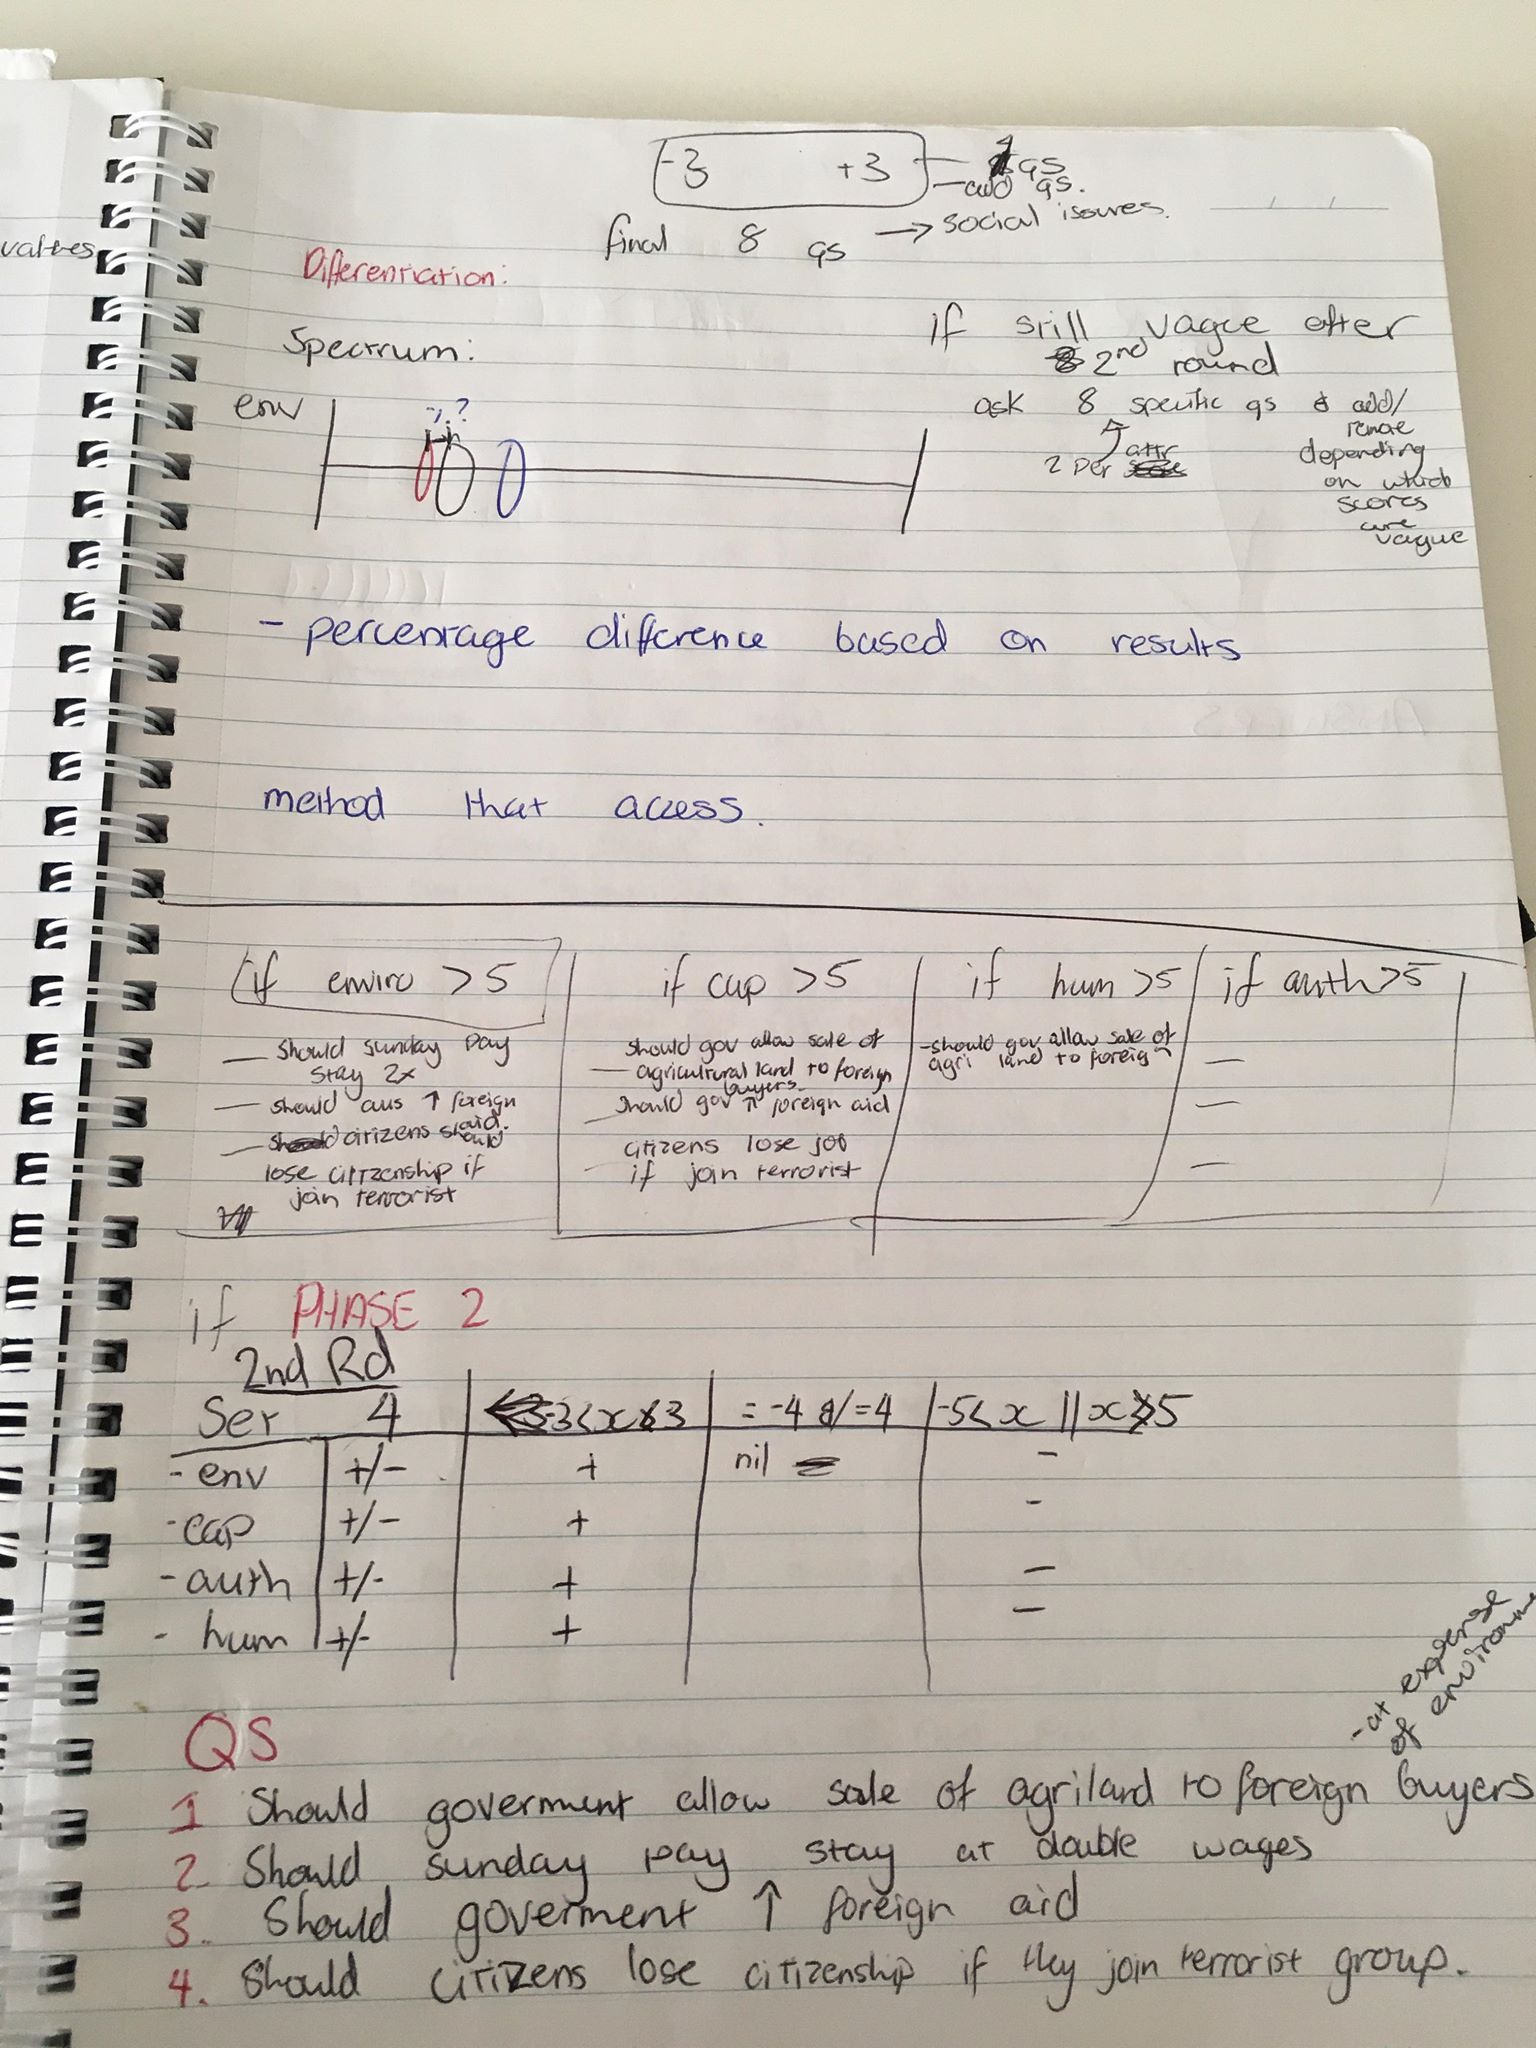 values
-3 +3
qs
- add qs.
final 8 qs → social issues.
Differentiation:
Spectrum:
env
?
if still vague after
2nd round
ask 8 specific qs & add/
remove
depending
on which
scores
are
vague
2 per attr
- percentage difference based on results
method that access.
if enviro > 5
— should sunday pay
stay 2x
— should aus ↑ foreign
aid.
— citizens should
lose citizenship if
join terrorist
if cap > 5
should gov allow sale of
— agricultural land to foreign
buyers
— should gov ↑ foreign aid
citizens lose job
- if join terrorist
if hum > 5
- should gov allow sale of
agri land to foreign
if auth > 5
—
—
—
if PHASE 2
2nd Rd
Set 4 -3 < x < 3 = -4 / = 4 -5 < x || x > 5
- env +/- + nil -
- cap +/- + -
- auth +/- + -
- hum +/- + -
- at expense
of environme
QS
1 Should goverment allow sale of agriland to foreign buyers
2. Should sunday pay stay at double wages
3. Should goverment ↑ foreign aid
4. Should citizens lose citizenship if they join terrorist group.